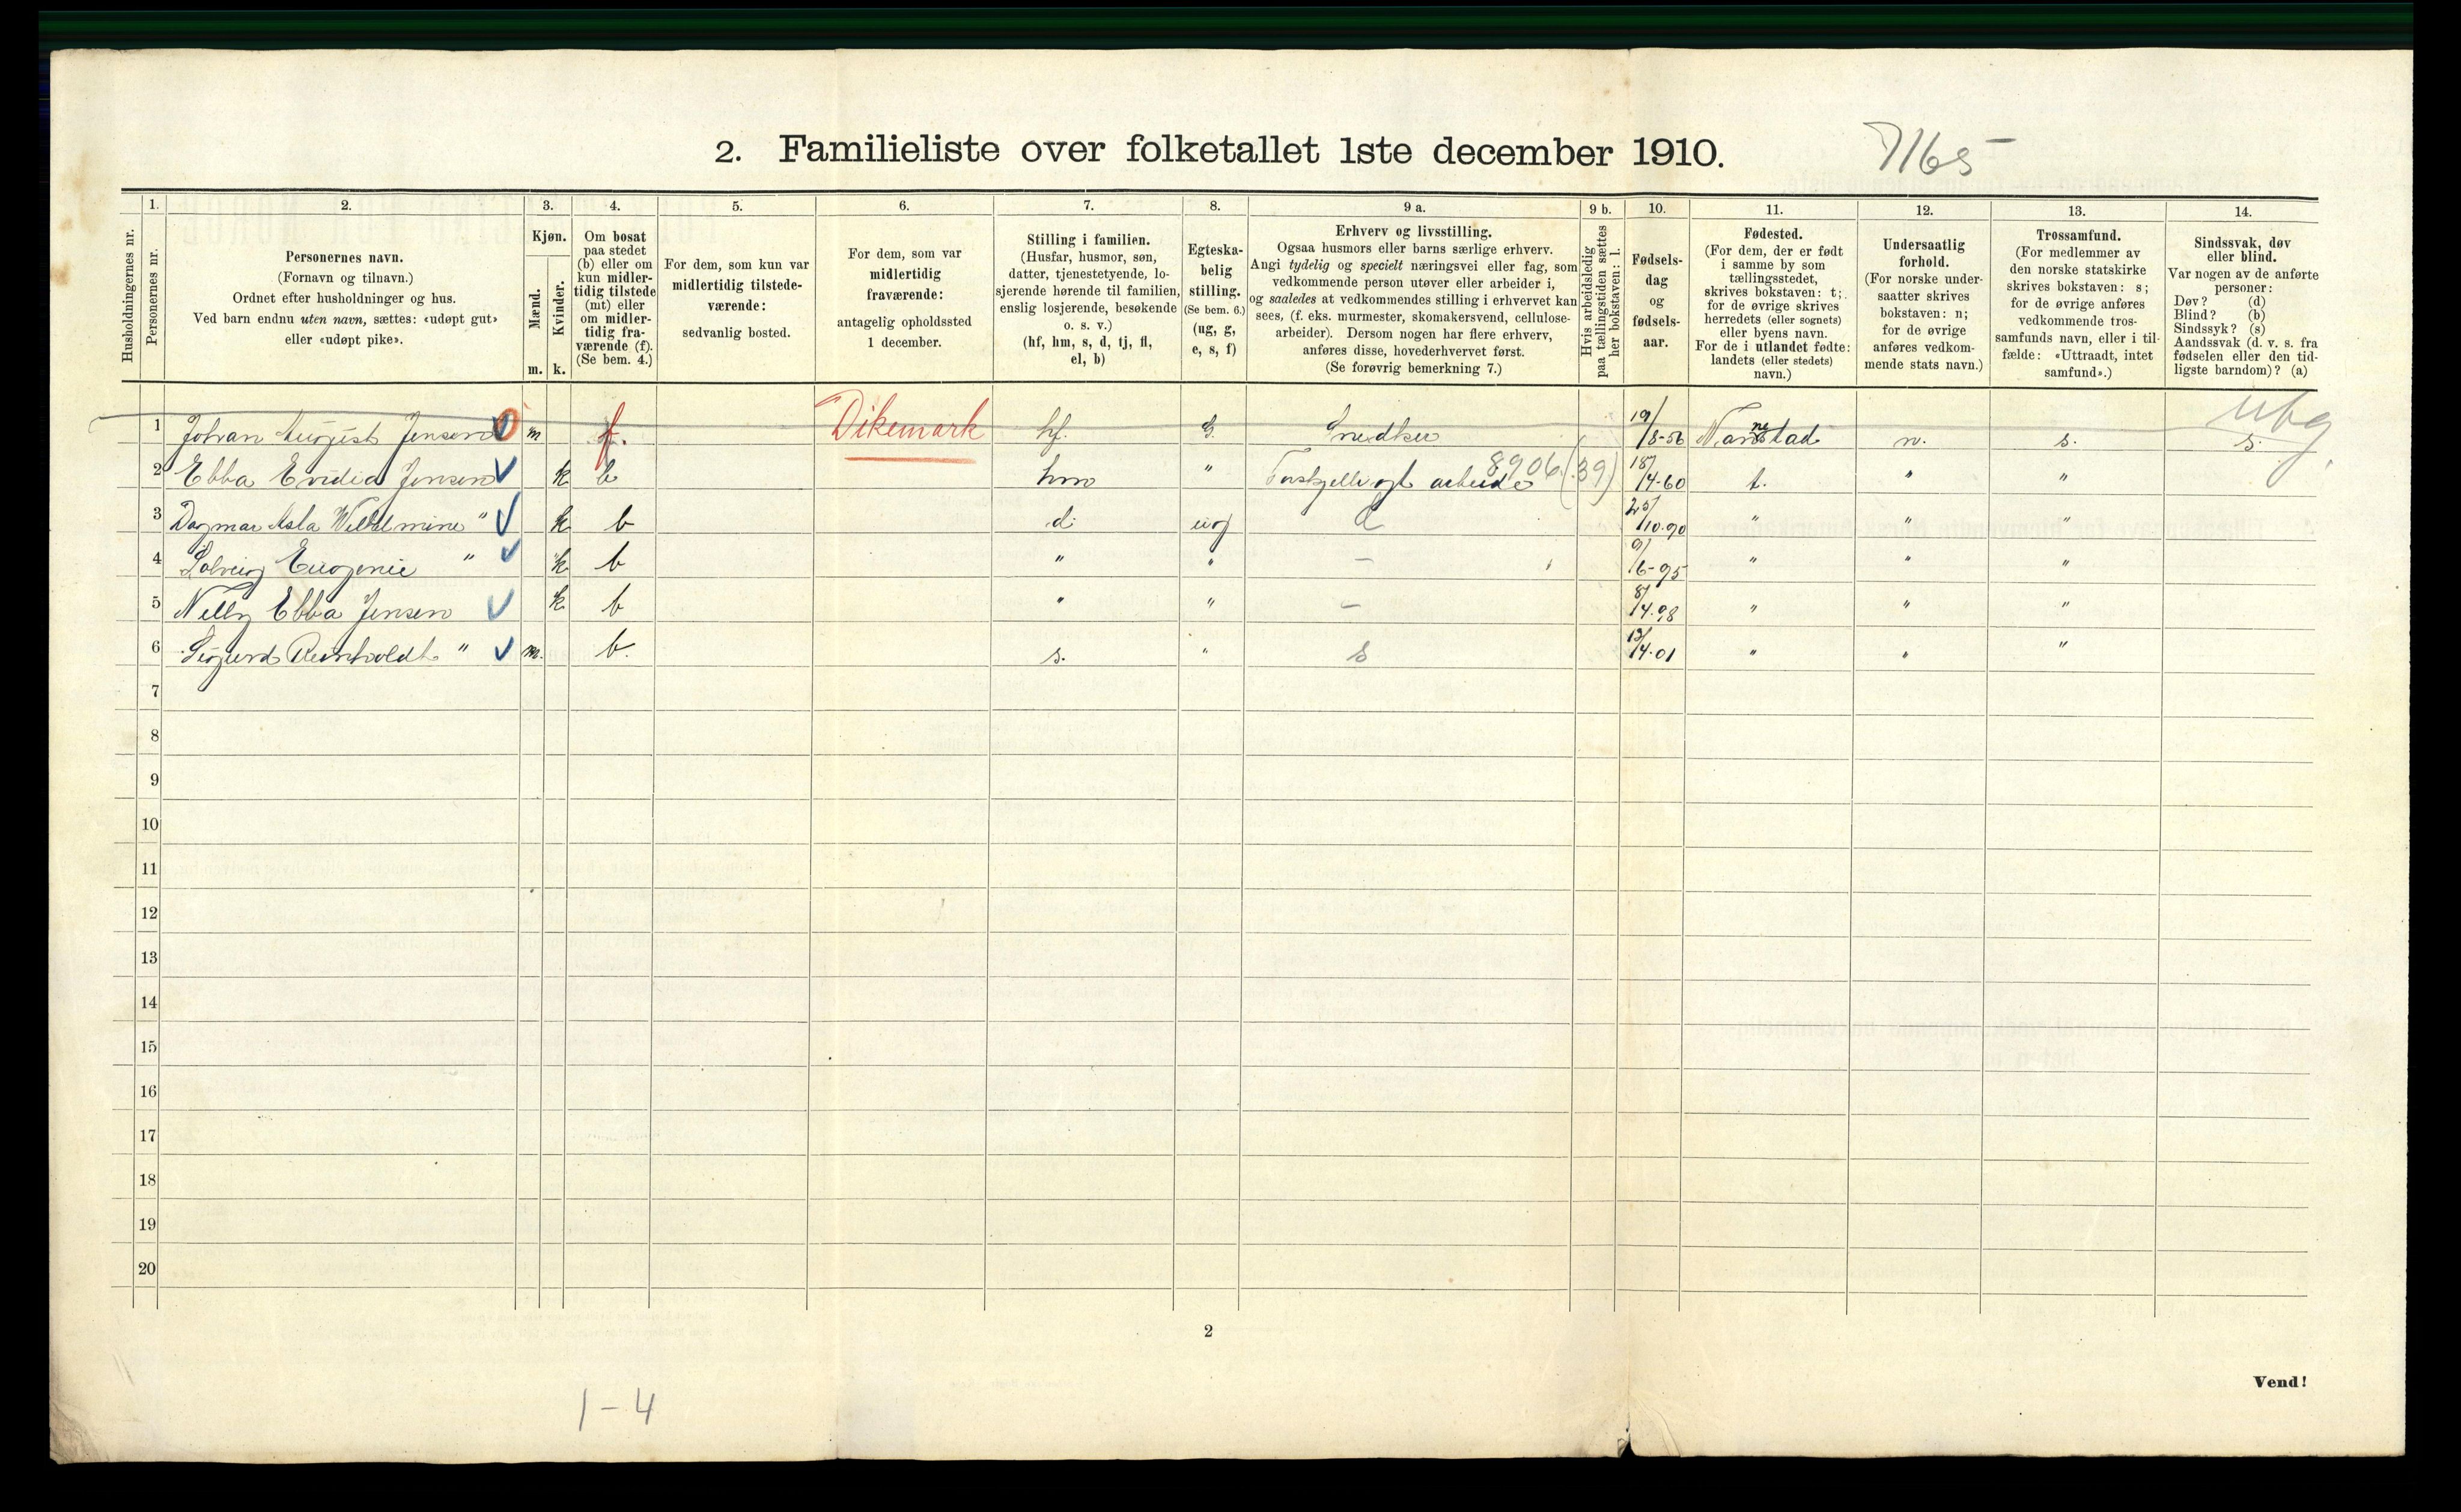 2. Familieliste over folketallet 1ste december 1910.
7165
Husholdningernes nr.
1.
Personernes nr.
2.
Personernes navn.
(Fornavn og tilnavn.)
Ordnet efter husholdninger og hus.
Ved barn endnu uten navn, sættes: «udøpt gut»
eller «udøpt pike».
3.
Kjøn.
Mænd.
Kvinder.
m. k.
4.
Om bosat
paa stedet
(b) eller om
kun midler-
tidig tilstede
(mt) eller
om midler-
tidig fra-
værende (f).
(Se bem. 4.)
5.
For dem, som kun var
midlertidig tilstede-
værende:
sedvanlig bosted.
6.
For dem, som var
midlertidig
fraværende:
antagelig opholdssted
1 december.
7.
Stilling i familien.
(Husfar, husmor, søn,
datter, tjenestetyende, lo-
sjerende hørende til familien,
enslig losjerende, besøkende
o. s. v.)
(hf, hm, s, d, tj, fl,
el, b)
8.
Egteska-
belig
stilling.
(Se bem. 6.)
(ug, g,
e, s, f)
9 a.
Erhverv og livsstilling.
Ogsaa husmors eller barns særlige erhverv.
Angi tydelig og specielt næringsvei eller fag, som
vedkommende person utøver eller arbeider i,
og saaledes at vedkommendes stilling i erhvervet kan
sees, (f. eks. murmester, skomakersvend, cellulose-
arbeider). Dersom nogen har flere erhverv,
anføres disse, hovederhvervet først.
(Se forøvrig bemerkning 7.)
9 b.
Hvis arbeidsledig
paa tællingstiden sættes
her bokstaven: l.
10.
Fødsels-
dag
og
fødsels-
aar.
11.
Fødested.
(For dem, der er født
i samme by som
tællingsstedet,
skrives bokstaven: t;
for de øvrige skrives
herredets (eller sognets)
eller byens navn.
For de i utlandet fødte:
landets (eller stedets)
navn.)
12.
Undersaatlig
forhold.
(For norske under-
saatter skrives
bokstaven: n;
for de øvrige
anføres vedkom-
mende stats navn.)
13.
Trossamfund.
(For medlemmer av
den norske statskirke
skrives bokstaven: s;
for de øvrige anføres
vedkommende tros-
samfunds navn, eller i til-
fælde: «Uttraadt, intet
samfund».)
14.
Sindssvak, døv
eller blind.
Var nogen av de anførte
personer:
Døv? (d)
Blind? (b)
Sindssyk? (s)
Aandssvak (d. v. s. fra
fødselen eller den tid-
ligste barndom)? (a)
ubg.
1 Johan August Jensen m f. Dikemark hf. g. Snedker 19/8-56 Nannestad n. s. s.
2 Ebba Evidia Jensen k b hm " Forskjelligt arbeide 8906 (39) 18/4-60 t. " "
3 Dagmar Asta Wilhelmine " k b d. ug d 25/10.90 " " "
4 Solveig Eugenie " k b " " — 9/6-95 " " "
5 Nelly Ebba Jensen k b " " — 8/4.98 " " "
6 Sigurd Reinholdt " m. b. s. " s 13/4.01 " " "
7
8
9
10
11
12
13
14
15
16
17
18
19
20
2
Vend!
1-4